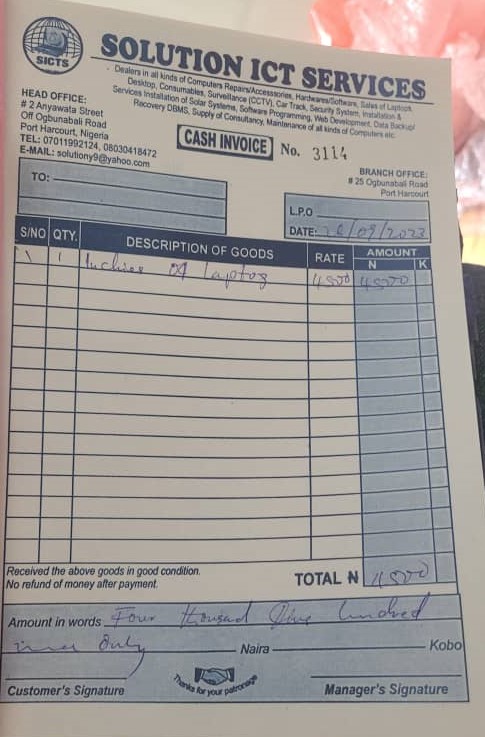 SICTS
SOLUTION ICT SERVICES
Dealers in all kinds of Computers Repairs/Accessories, Hardwares/Software, Sales of Laptops,
Desktop, Consumables, Surveillance (CCTV), Car Track, Security System, Installation &
Services Installation of Solar Systems, Software Programming, Web Development, Data Backup/
Recovery DBMS, Supply of Consultancy, Maintenance of all kinds of Computers etc.
HEAD OFFICE:
# 2 Anyawata Street
Off Ogbunabali Road
Port Harcourt, Nigeria
TEL: 07011992124, 08030418472
E-MAIL: solutiony9@yahoo.com
CASH INVOICE No. 3114
BRANCH OFFICE:
# 25 Ogbunabali Road
Port Harcourt
TO:
L.P.O
DATE: /09/2023
S/NO QTY. DESCRIPTION OF GOODS RATE AMOUNT
N K
1 1 of Laptop 4500 4500
Received the above goods in good condition.
No refund of money after payment.
TOTAL N 4500
Amount in words Four thousand five hundred
only Naira Kobo
Thanks for your patronage
Customer's Signature Manager's Signature